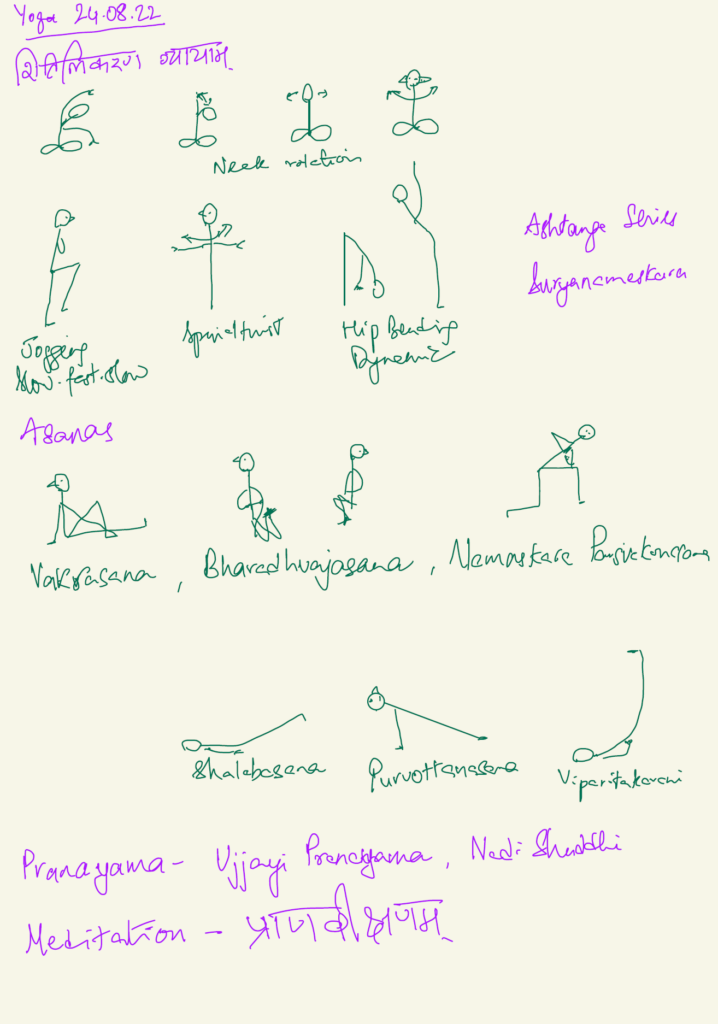 Yoga 24.08.22
शिथिलिकरण व्यायाम्
Neck rotation
Ashtanga Series
Suryanamaskara
Jogging
Slow-fast-slow
Spinal twist
Hip Bending
Dynamic
Asanas
Vakrasana , Bharadhvajasana , Namaskara Parsvakonasana
Shalabasana
Purvottanasana
Viparitakarani
Pranayama - Ujjayi Pranayama , Nadi Shuddhi
Meditation - प्राणवीक्षणम्